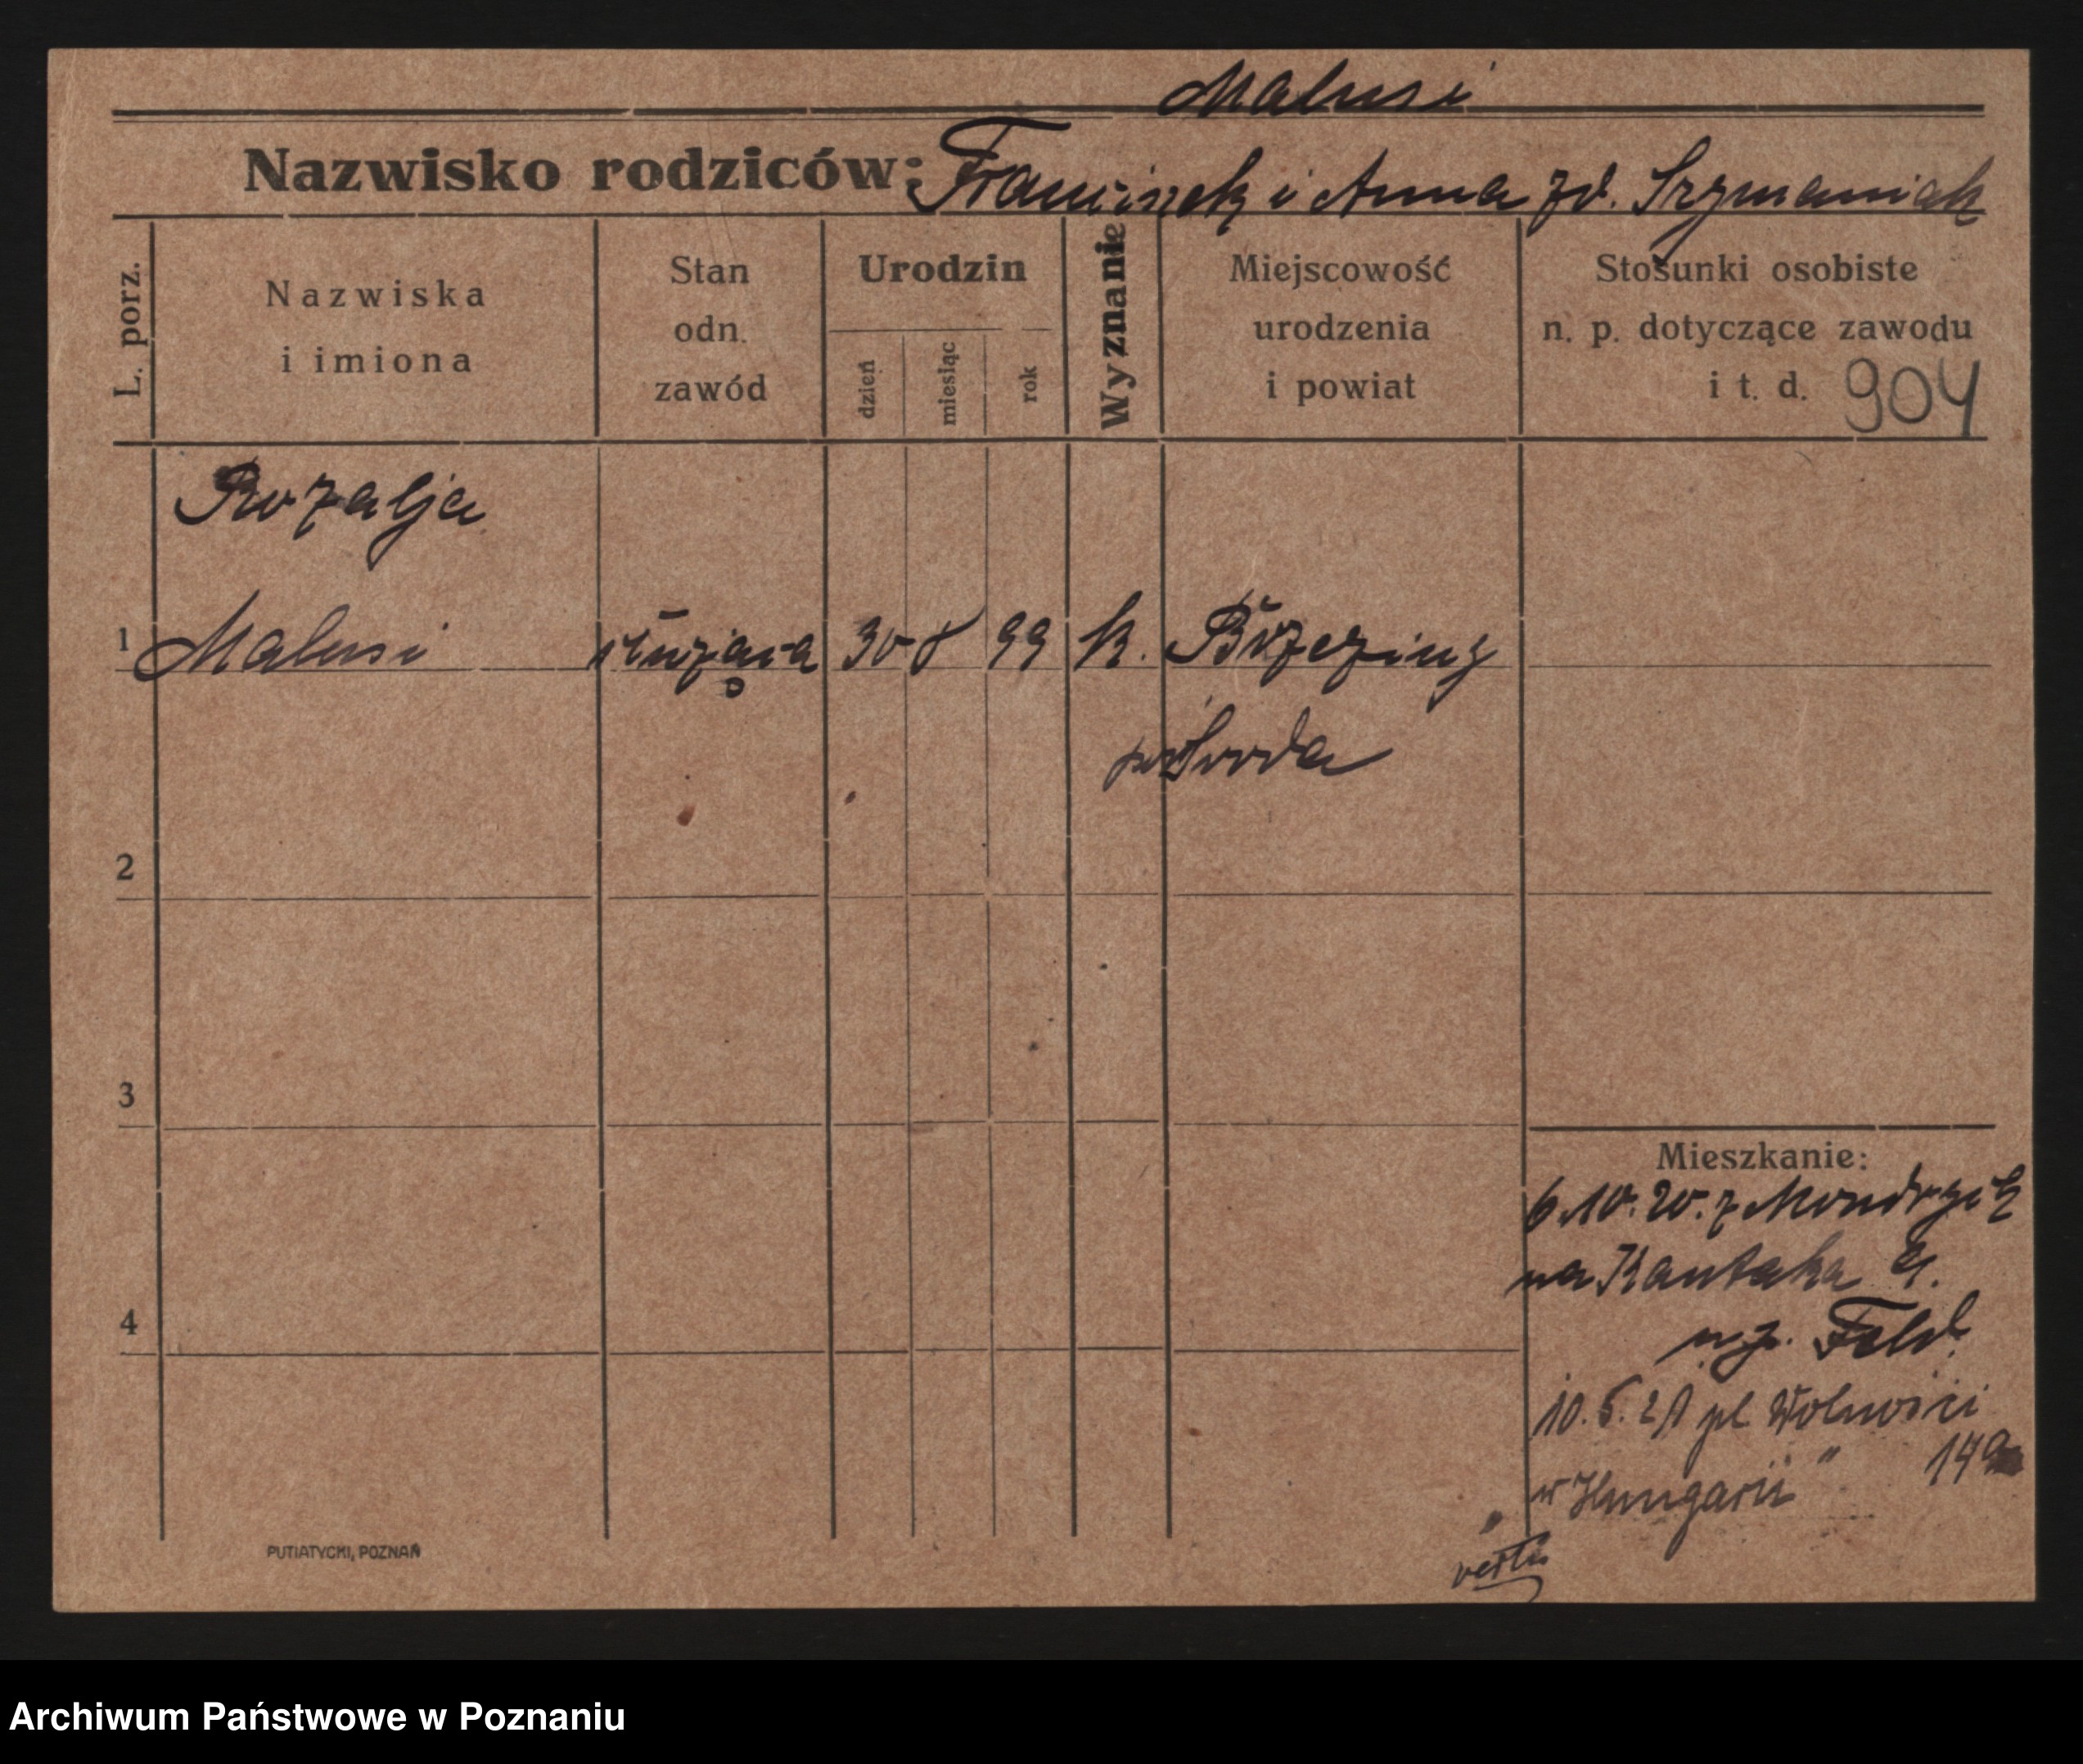 Malusi
Nazwisko rodziców: Franciszek i Anna zd. Szymaniak
L. porz.
Nazwiska
i imiona
Stan
odn.
zawód
Urodzin
dzień
miesiąc
rok
Wyznanie
Miejscowość
urodzenia
i powiat
Stosunki osobiste
n. p. dotyczące zawodu
i t. d. 904
Rozalja
1 Malusi służąca 30 8 99 k. Brzeziny
pow Środa
2
3
4
Mieszkanie:
6.10.20. z
na Kantaka
Feld
10.5.21 pl Wolności
14a
„w Hungarii"
verte
PUTIATYCKI, POZNAŃ
Archiwum Państwowe w Poznaniu